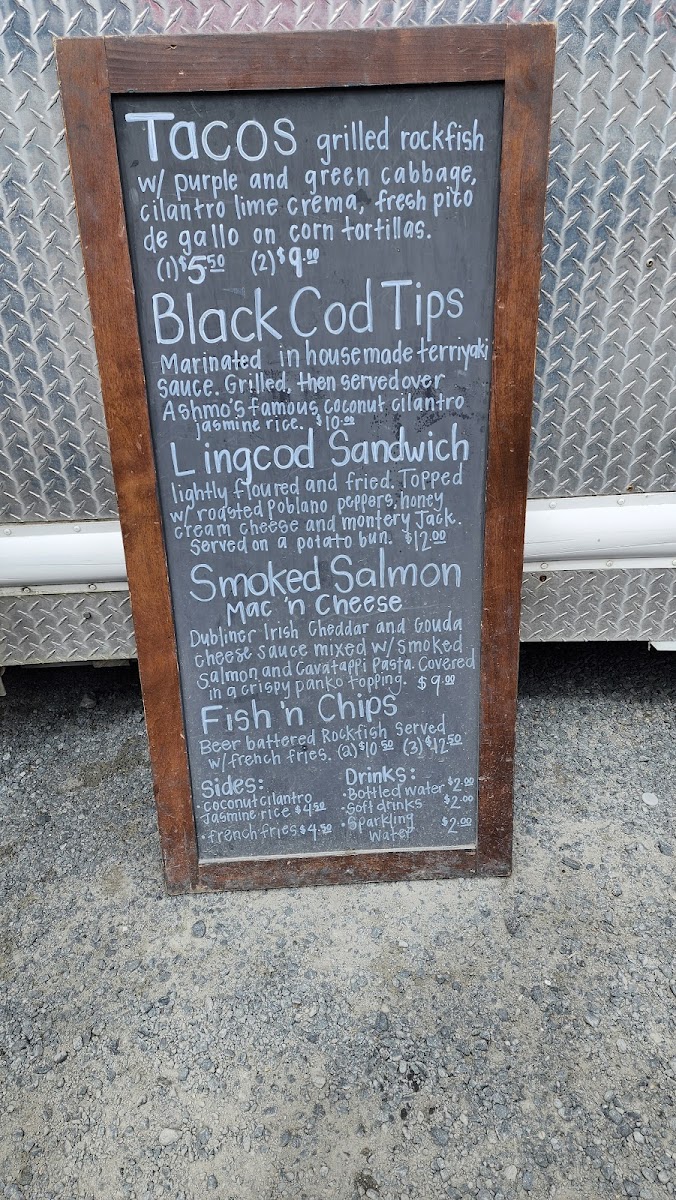 Tacos grilled rockfish
w/ purple and green cabbage,
cilantro lime crema, fresh pico
de gallo on corn tortillas.
(1) $5.50 (2) $9.00
Black Cod Tips
Marinated in housemade terriyaki
sauce. Grilled, then served over
Ashmo's famous coconut cilantro
jasmine rice. $10.00
Lingcod Sandwich
lightly floured and fried. Topped
w/ roasted poblano peppers, honey
cream cheese and montery Jack.
Served on a potato bun. $12.00
Smoked Salmon
Mac 'n Cheese
Dubliner Irish Cheddar and Gouda
cheese sauce mixed w/ smoked
Salmon and Cavatappi Pasta. Covered
in a crispy panko topping. $9.00
Fish 'n Chips
Beer battered Rockfish Served
w/ french fries. (2) $10.50 (3) $12.50
Sides:
· coconut cilantro
Jasmine rice $4.50
· french fries $4.50
Drinks:
· Bottled water $2.00
· Soft drinks $2.00
· Sparkling
Water $2.00